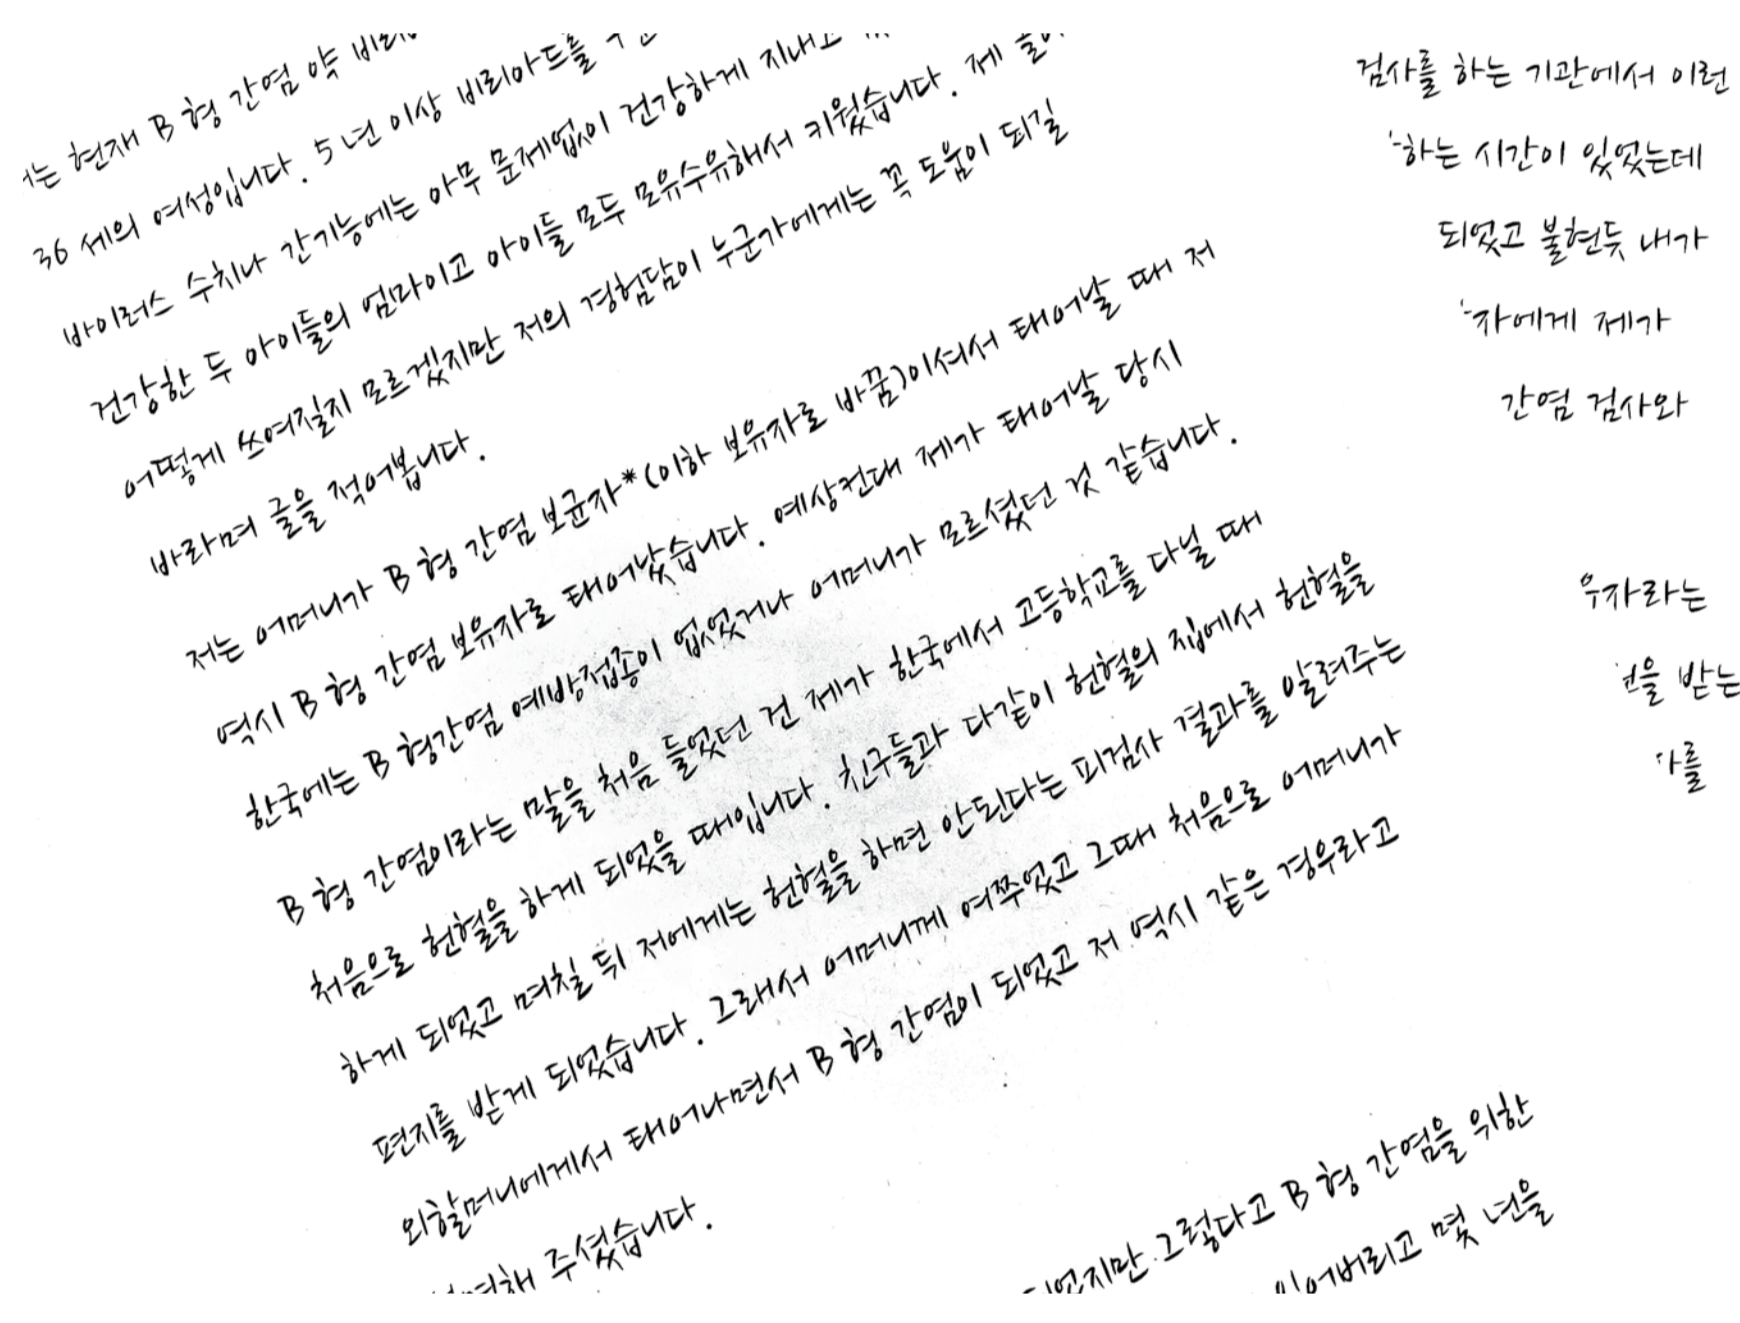 는 현재 B 형 간염 약
36 세의 여성입니다. 5 년 이상 비리아드를
바이러스 수치나 간기능에는 아무 문제없이 건강하게 지내고
건강한 두 아이들의 엄마이고 아이들 모두 모유수유해서 키웠습니다. 제
어떻게 쓰여질지 모르겠지만 저의 경험담이 누군가에게는 꼭 도움이 되길
바라며 글을 적어봅니다.
저는 어머니가 B 형 간염 보균자*(이하 보유자로 바꿈)이셔서 태어날 때 저
역시 B 형 간염 보유자로 태어났습니다. 예상컨대 제가 태어날 당시
한국에는 B 형간염 예방접종이 없었거나 어머니가 모르셨던 것 같습니다.
B 형 간염이라는 말을 처음 들었던 건 제가 한국에서 고등학교를 다닐 때
처음으로 헌혈을 하게 되었을 때입니다. 친구들과 다같이 헌혈의 집에서 헌혈을
하게 되었고 며칠 뒤 저에게는 헌혈을 하면 안된다는 피검사 결과를 알려주는
편지를 받게 되었습니다. 그래서 어머니께 여쭈었고 그때 처음으로 어머니가
외할머니에게서 태어나면서 B 형 간염이 되었고 저 역시 같은 경우라고
주셨습니다.
검사를 하는 기관에서 이런
하는 시간이 있었는데
되었고 불현듯 내가
자에게 제가
간염 검사와
유자라는
을 받는
를
그렇다고 B 형 간염을 위한
몇 년을